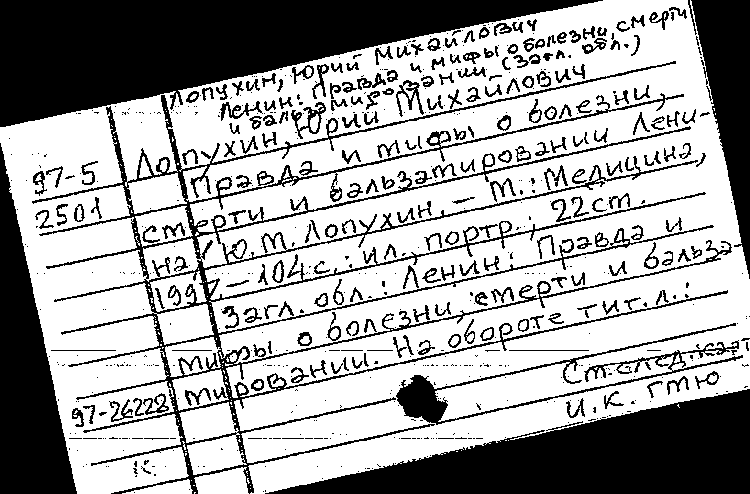 Лопухин, Юрий Михайлович
Ленин: Правда и мифы о болезни, смерти
и бальзамировании (Загл. обл.)
97-5 Лопухин, Юрий Михайлович
2501 Правда и мифы о болезни,
смерти и бальзамировании Лени-
на / Ю.М. Лопухин. – М.: Медицина,
1997. – 104 с.: ил., портр.; 22 см.
Загл. обл.: Ленин: Правда и
мифы о болезни, смерти и бальза-
97-26228 мировании. На обороте тит.л.:
См. след. карт
И.К. ГМЮ
К.